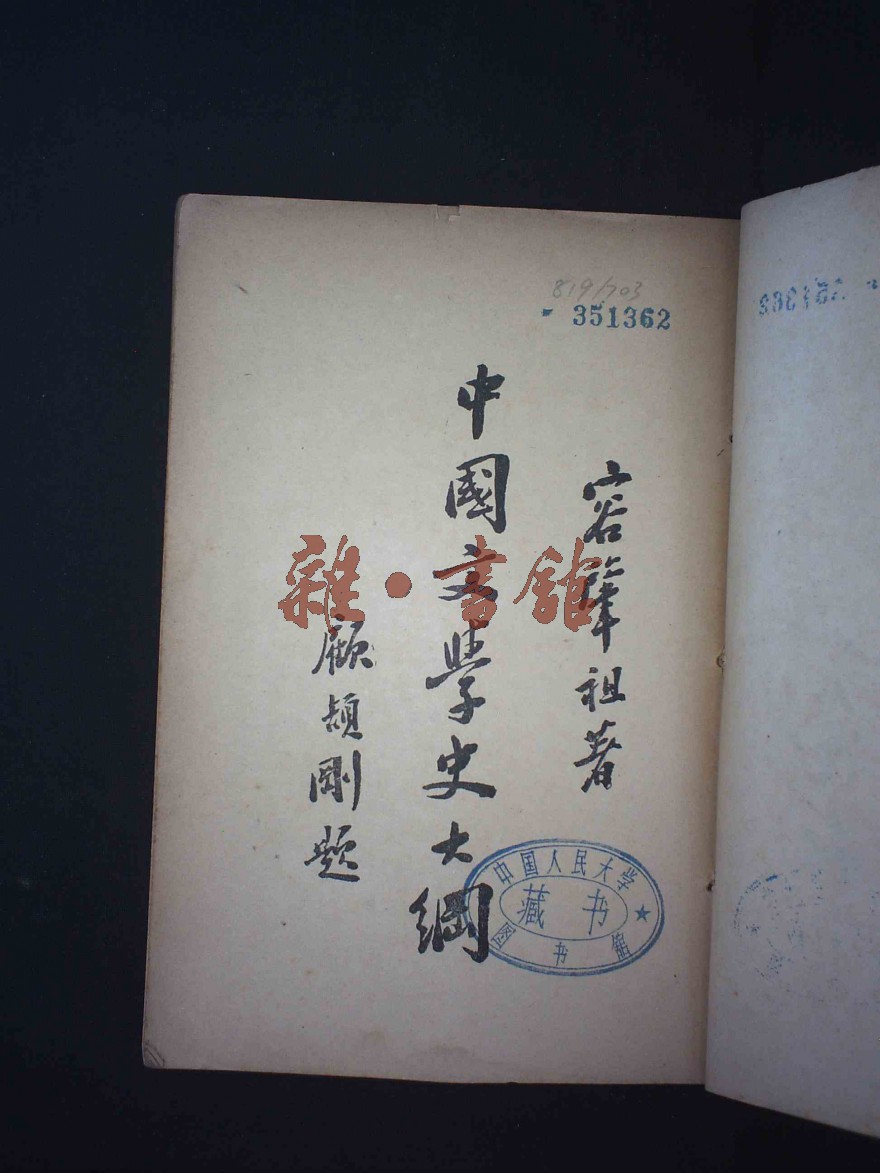 819/703
351362
容肇祖著
中國文學史大綱
顧頡剛題
雜·書館
中国人民大学
藏书
图书馆